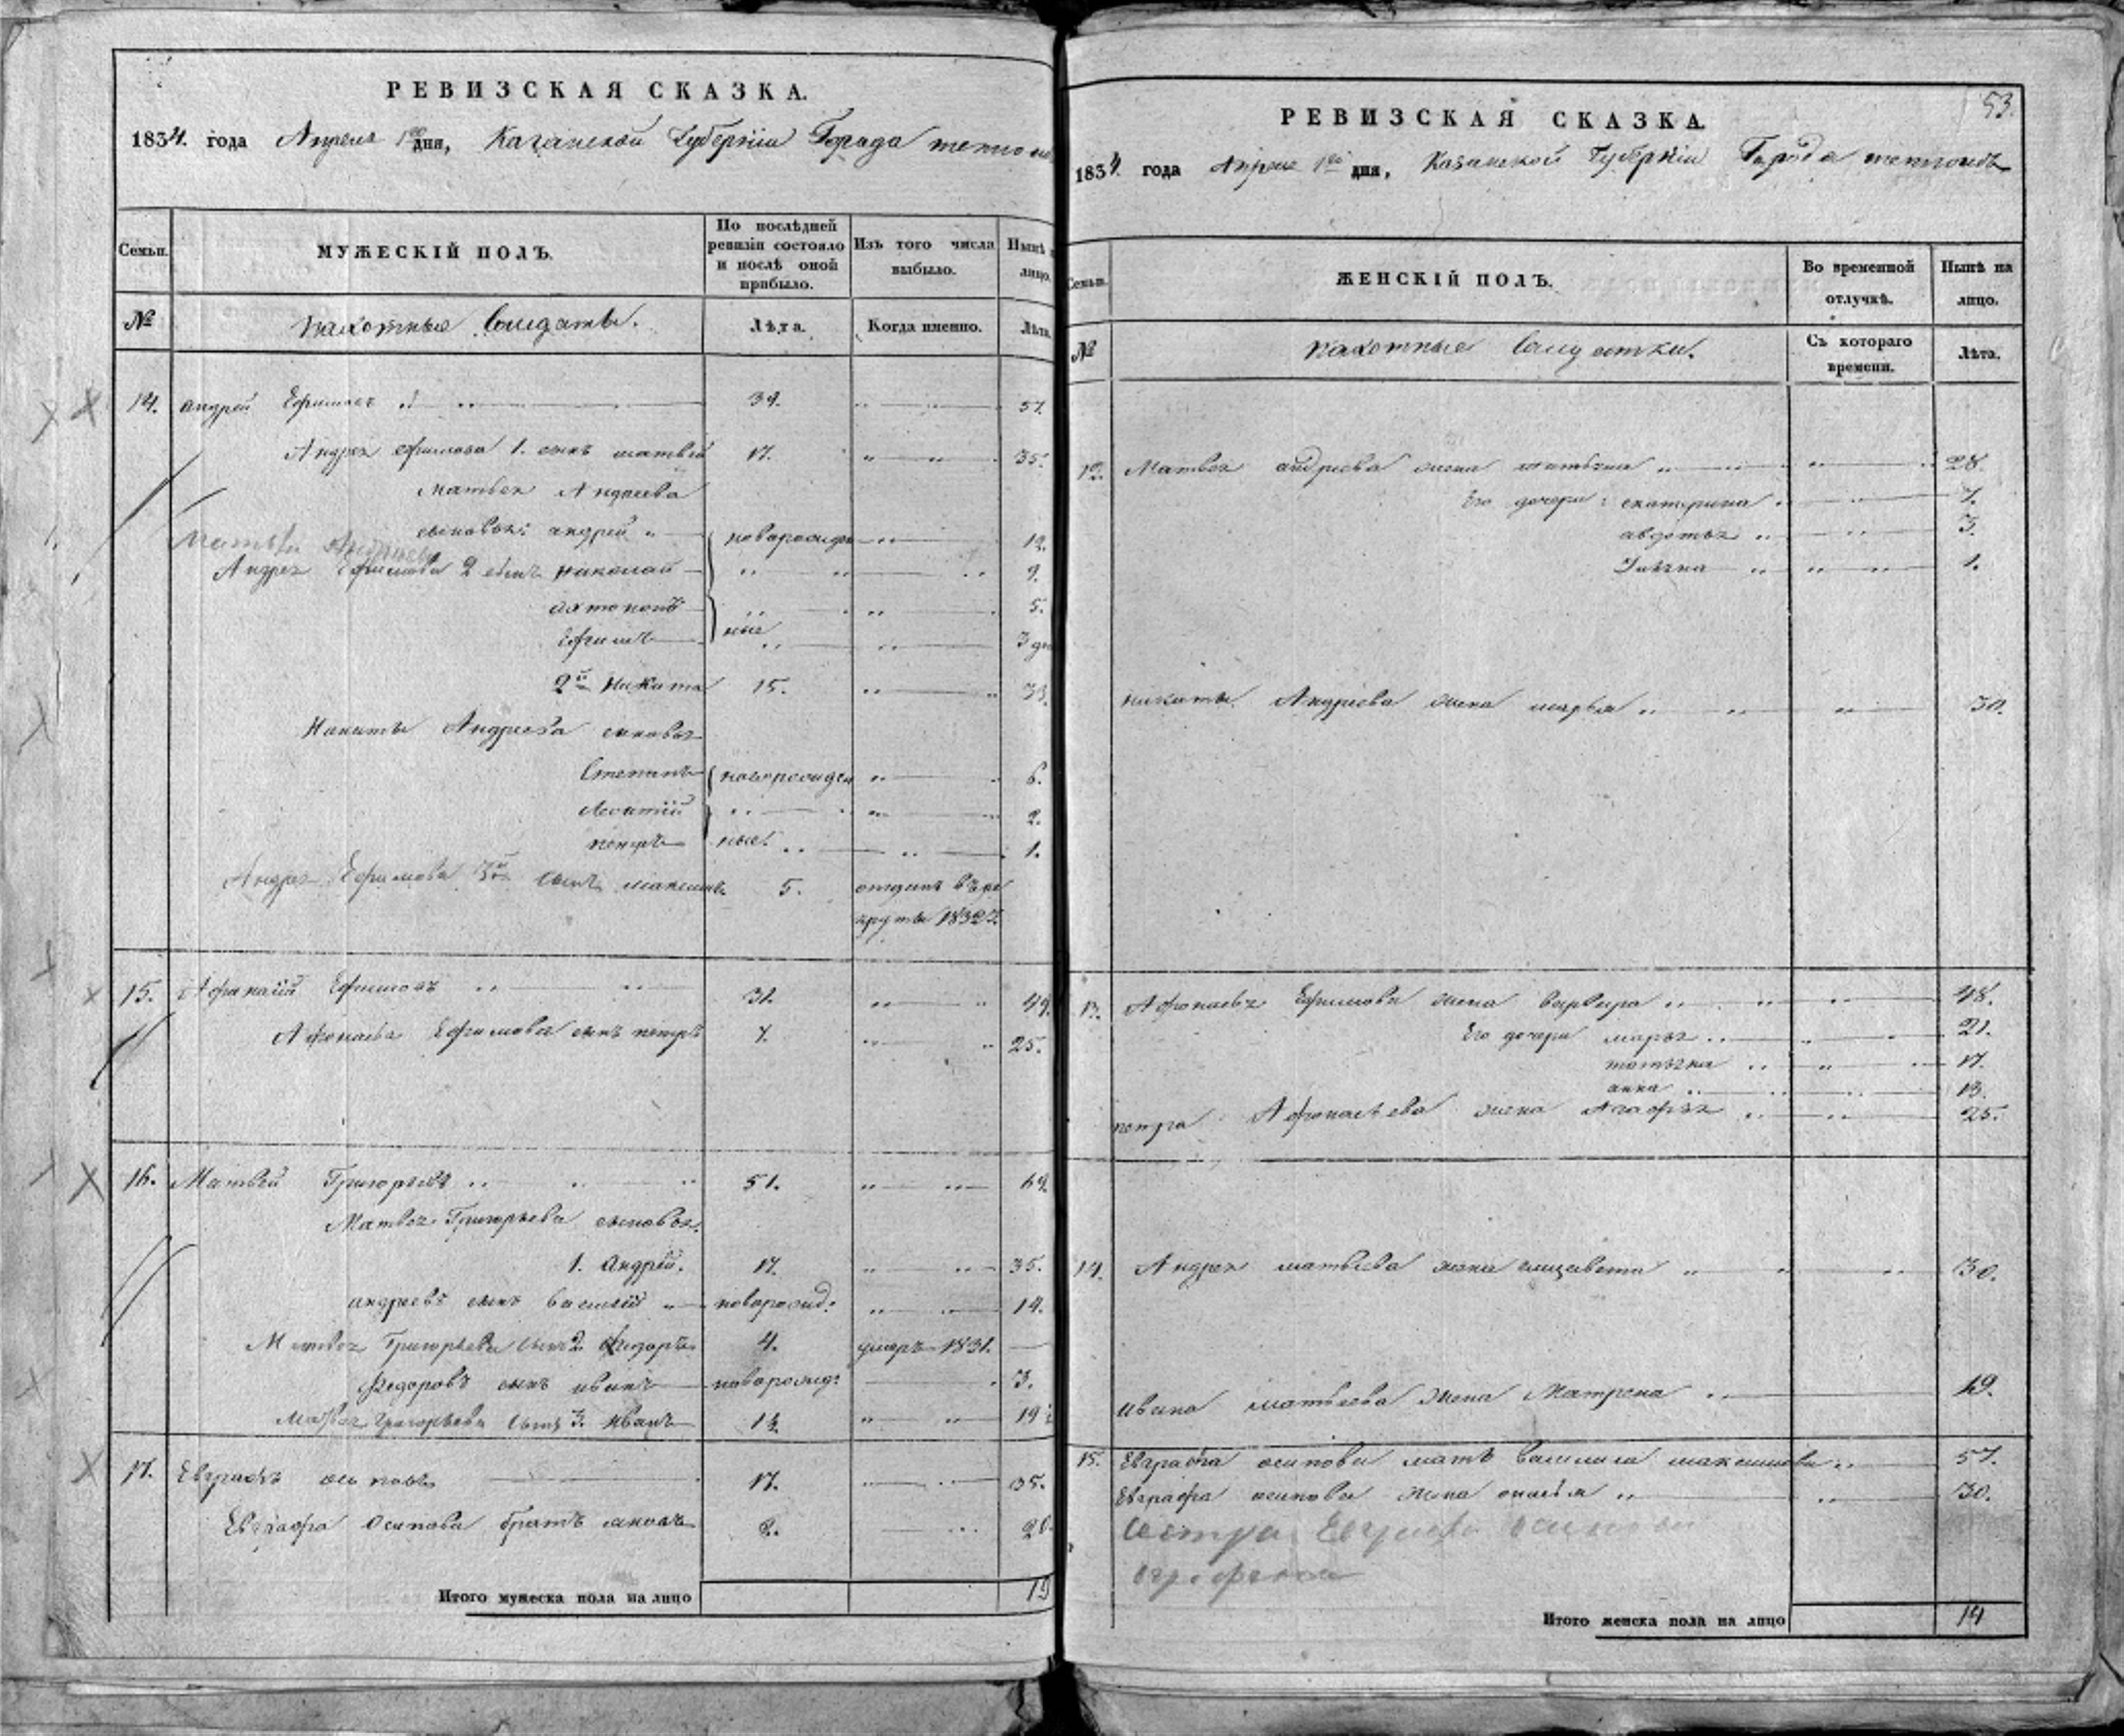 РЕВИЗСКАЯ СКАЗКА.
1834. года Апреля 1го дня, Казанской Губерніи Города
Семьи.
МУЖЕСКІЙ ПОЛЪ.
По послѣдней ревизіи состояло и послѣ оной прибыло.
Изъ того числа выбыло.
Нынѣ лицо.
№
пахотные Солдаты.
Лѣта.
Когда именно.
Лѣта
14. Андрей Ефимовъ 39. 57.
Андрея Ефимова 1. сынъ матвѣй 17. 35.
Матвея Андреева
сыновья: андрей новорожден 12.
Матвѣи Андреевъ
Андрея Ефимова 2 сынъ николай 9.
5.
Ефимъ ные 3
2й Никита 15. 33.
Никиты Андреева сыновья
Степанъ новорожден 6.
2.
петръ ные. 1.
Андрея Ефимова 3й сынъ максимъ 5. отданъ въ ре
круты 1832 г.
15. Афанасій Ефимовъ 31. 49.
Афонасья Ефимова сынъ петръ 7. 25.
16. Матвей Григорьевъ 51. 69.
Матвея Григорьева сыновья.
1. Андрей. 17. 35.
андреевъ сынъ василій новорожд: 14.
Матвея Григорьева сынъ 2. 4. умеръ 1831.
Федоровъ сынъ иванъ новорожд: 3.
Матвея Григорьева сынъ 3. Иванъ 19
17. Евграфъ осиповъ 17. 35.
Евграфа Осипова братъ яковъ 2. 20.
Итого мужеска пола на лицо 19
53.
РЕВИЗСКАЯ СКАЗКА.
1834. года Апреля 1го дня, Казанской Губерніи Города
Семьи.
ЖЕНСКІЙ ПОЛЪ.
Во временной отлучкѣ.
Нынѣ на лицо.
№
пахотные Солдатки.
Съ котораго времени.
Лѣта.
Матвея андреева жена татьяна 28.
Его дочери: екатерина 7.
авдотья 3.
1.
никиты Андреева жена марья 30.
13. Афонасья Ефимова жена варвара 48.
Его дочери марья 21.
татьяна 17.
анна 13.
петра Афонасьева жена Агафья 25.
14. Андрея матвѣева жена елизавета 30.
Ивана матвеева жена Матрена 19.
15. Евграфа осипова мать василиса максимова 57.
Евграфа осипова жена 30.
Сестра Евграфа осипова
Итого женска пола на лицо 14